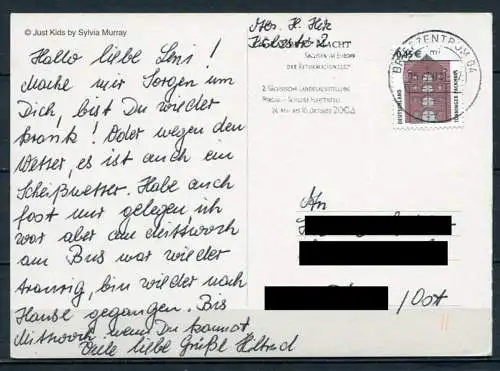 © Just Kids by Sylvia Murray
Hallo liebe Leni!
Mache mir Sorgen um
Dich, bist Du wieder
krank! Oder wegen den
Wetter, es ist auch ein
Scheißwetter. Habe auch
fast nur gelegen, ich
war aber am Mittwoch
am Bus war wieder
traurig, bin wieder nach
Hause gegangen. Bis
Mittwoch wenn Du kannst
Viele liebe Grüße Hiltrud
Abs. H.
MACHT
SACHSEN IM EUROPA
DER REFORMATIONSZEIT
2. SÄCHSISCHE LANDESAUSSTELLUNG
TORGAU - SCHLOSS HARTENFELS
24. MAI BIS 10. OKTOBER 2004
BRIEFZENTRUM 04
0,45 €
DEUTSCHLAND
An
/Ost